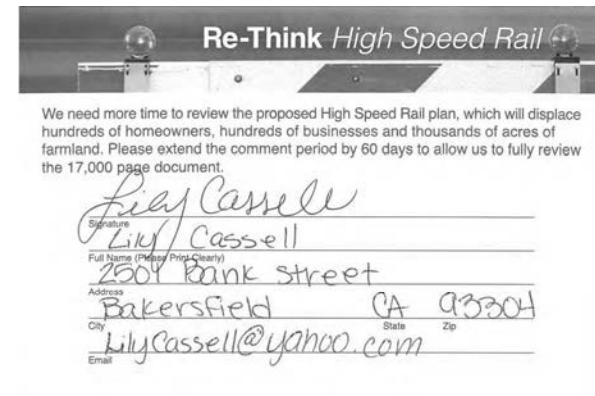 Re-Think High Speed Rail
We need more time to review the proposed High Speed Rail plan, which will displace
hundreds of homeowners, hundreds of businesses and thousands of acres of
farmland. Please extend the comment period by 60 days to allow us to fully review
the 17,000 page document.
Lily Cassell
Signature
Lily Cassell
Full Name (Please Print Clearly)
2501 Bank street
Address
Bakersfield CA 93304
City State Zip
LilyCassell@yahoo.com
Email